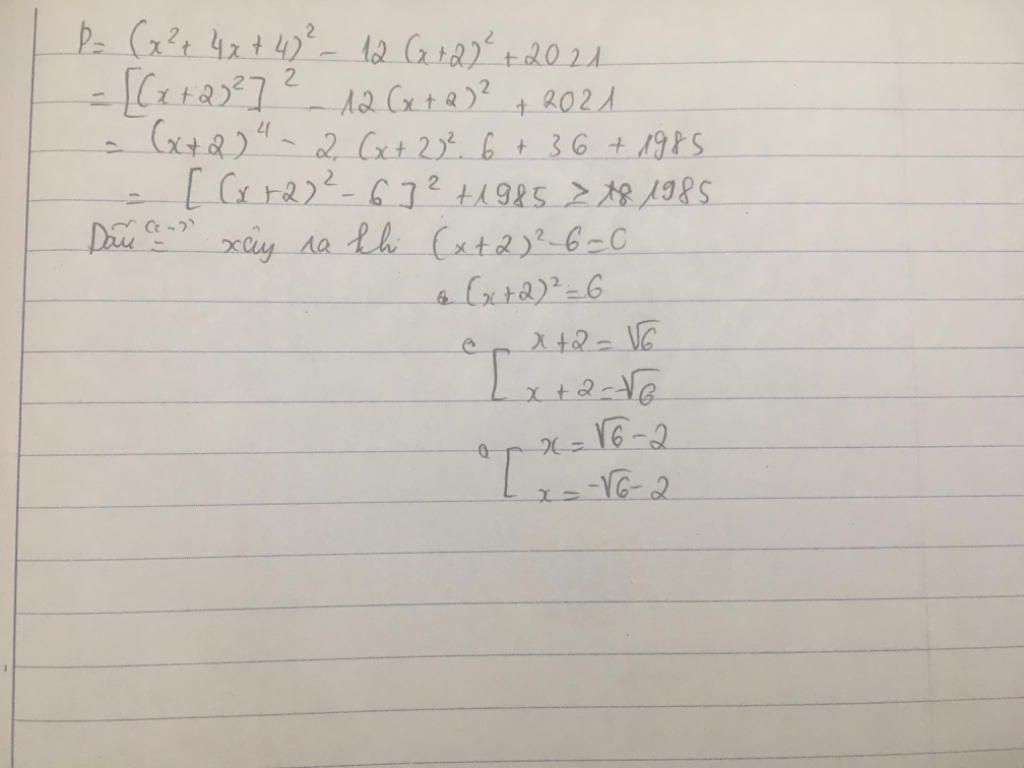 P = (x² + 4x + 4)² - 12 (x+2)² + 2021
= [(x+2)²]² - 12(x+2)² + 2021
= (x+2)⁴ - 2. (x+2)². 6 + 36 + 1985
= [(x+2)² - 6]² + 1985 ≥ 1985
Dấu "=" xảy ra khi (x+2)² - 6 = 0
(x+2)² = 6
x + 2 = √6
x + 2 = -√6
x = √6 - 2
x = -√6 - 2